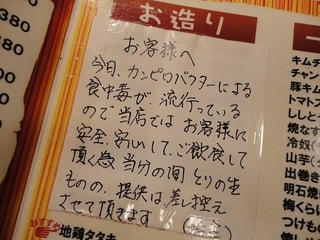 380
380
お造り
お客様へ
今日、カンピロバクターによる
食中毒が、流行っている
ので当店では お客様に
安全、安心して、ご飲食して
頂く為 当分の間 とりの生
もの、提供は、差し控え
させて頂きます
おすすめ
地鶏タタキ
キムチ
チャン
豚キム
トマト
ししとう
焼なす
冷奴
山芋
出巻き
明石焼
梅くら
つけも